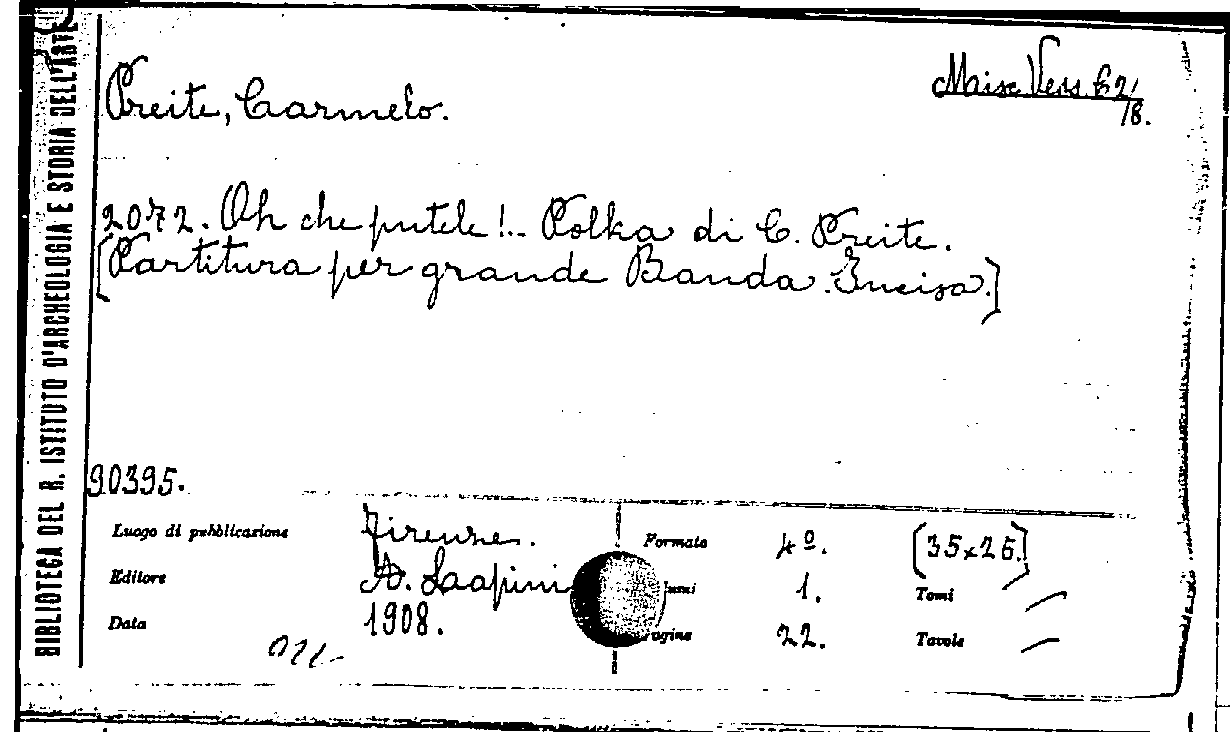 BIBLIOTECA DEL R. ISTITUTO D'ARCHEOLOGIA E STORIA DELL'ARTE
Preite, Carmelo.
Misc. Vers. B 2/
18.
2072. Oh che putele!.. Polka di C. Preite.
[Partitura per grande Banda. Incisa.]
90395.
Luogo di pubblicazione Firenze. Formato 4º. [35x26.]
Editore A. Lapini 1. Tomi —
Data 1908. 22. Tavole —